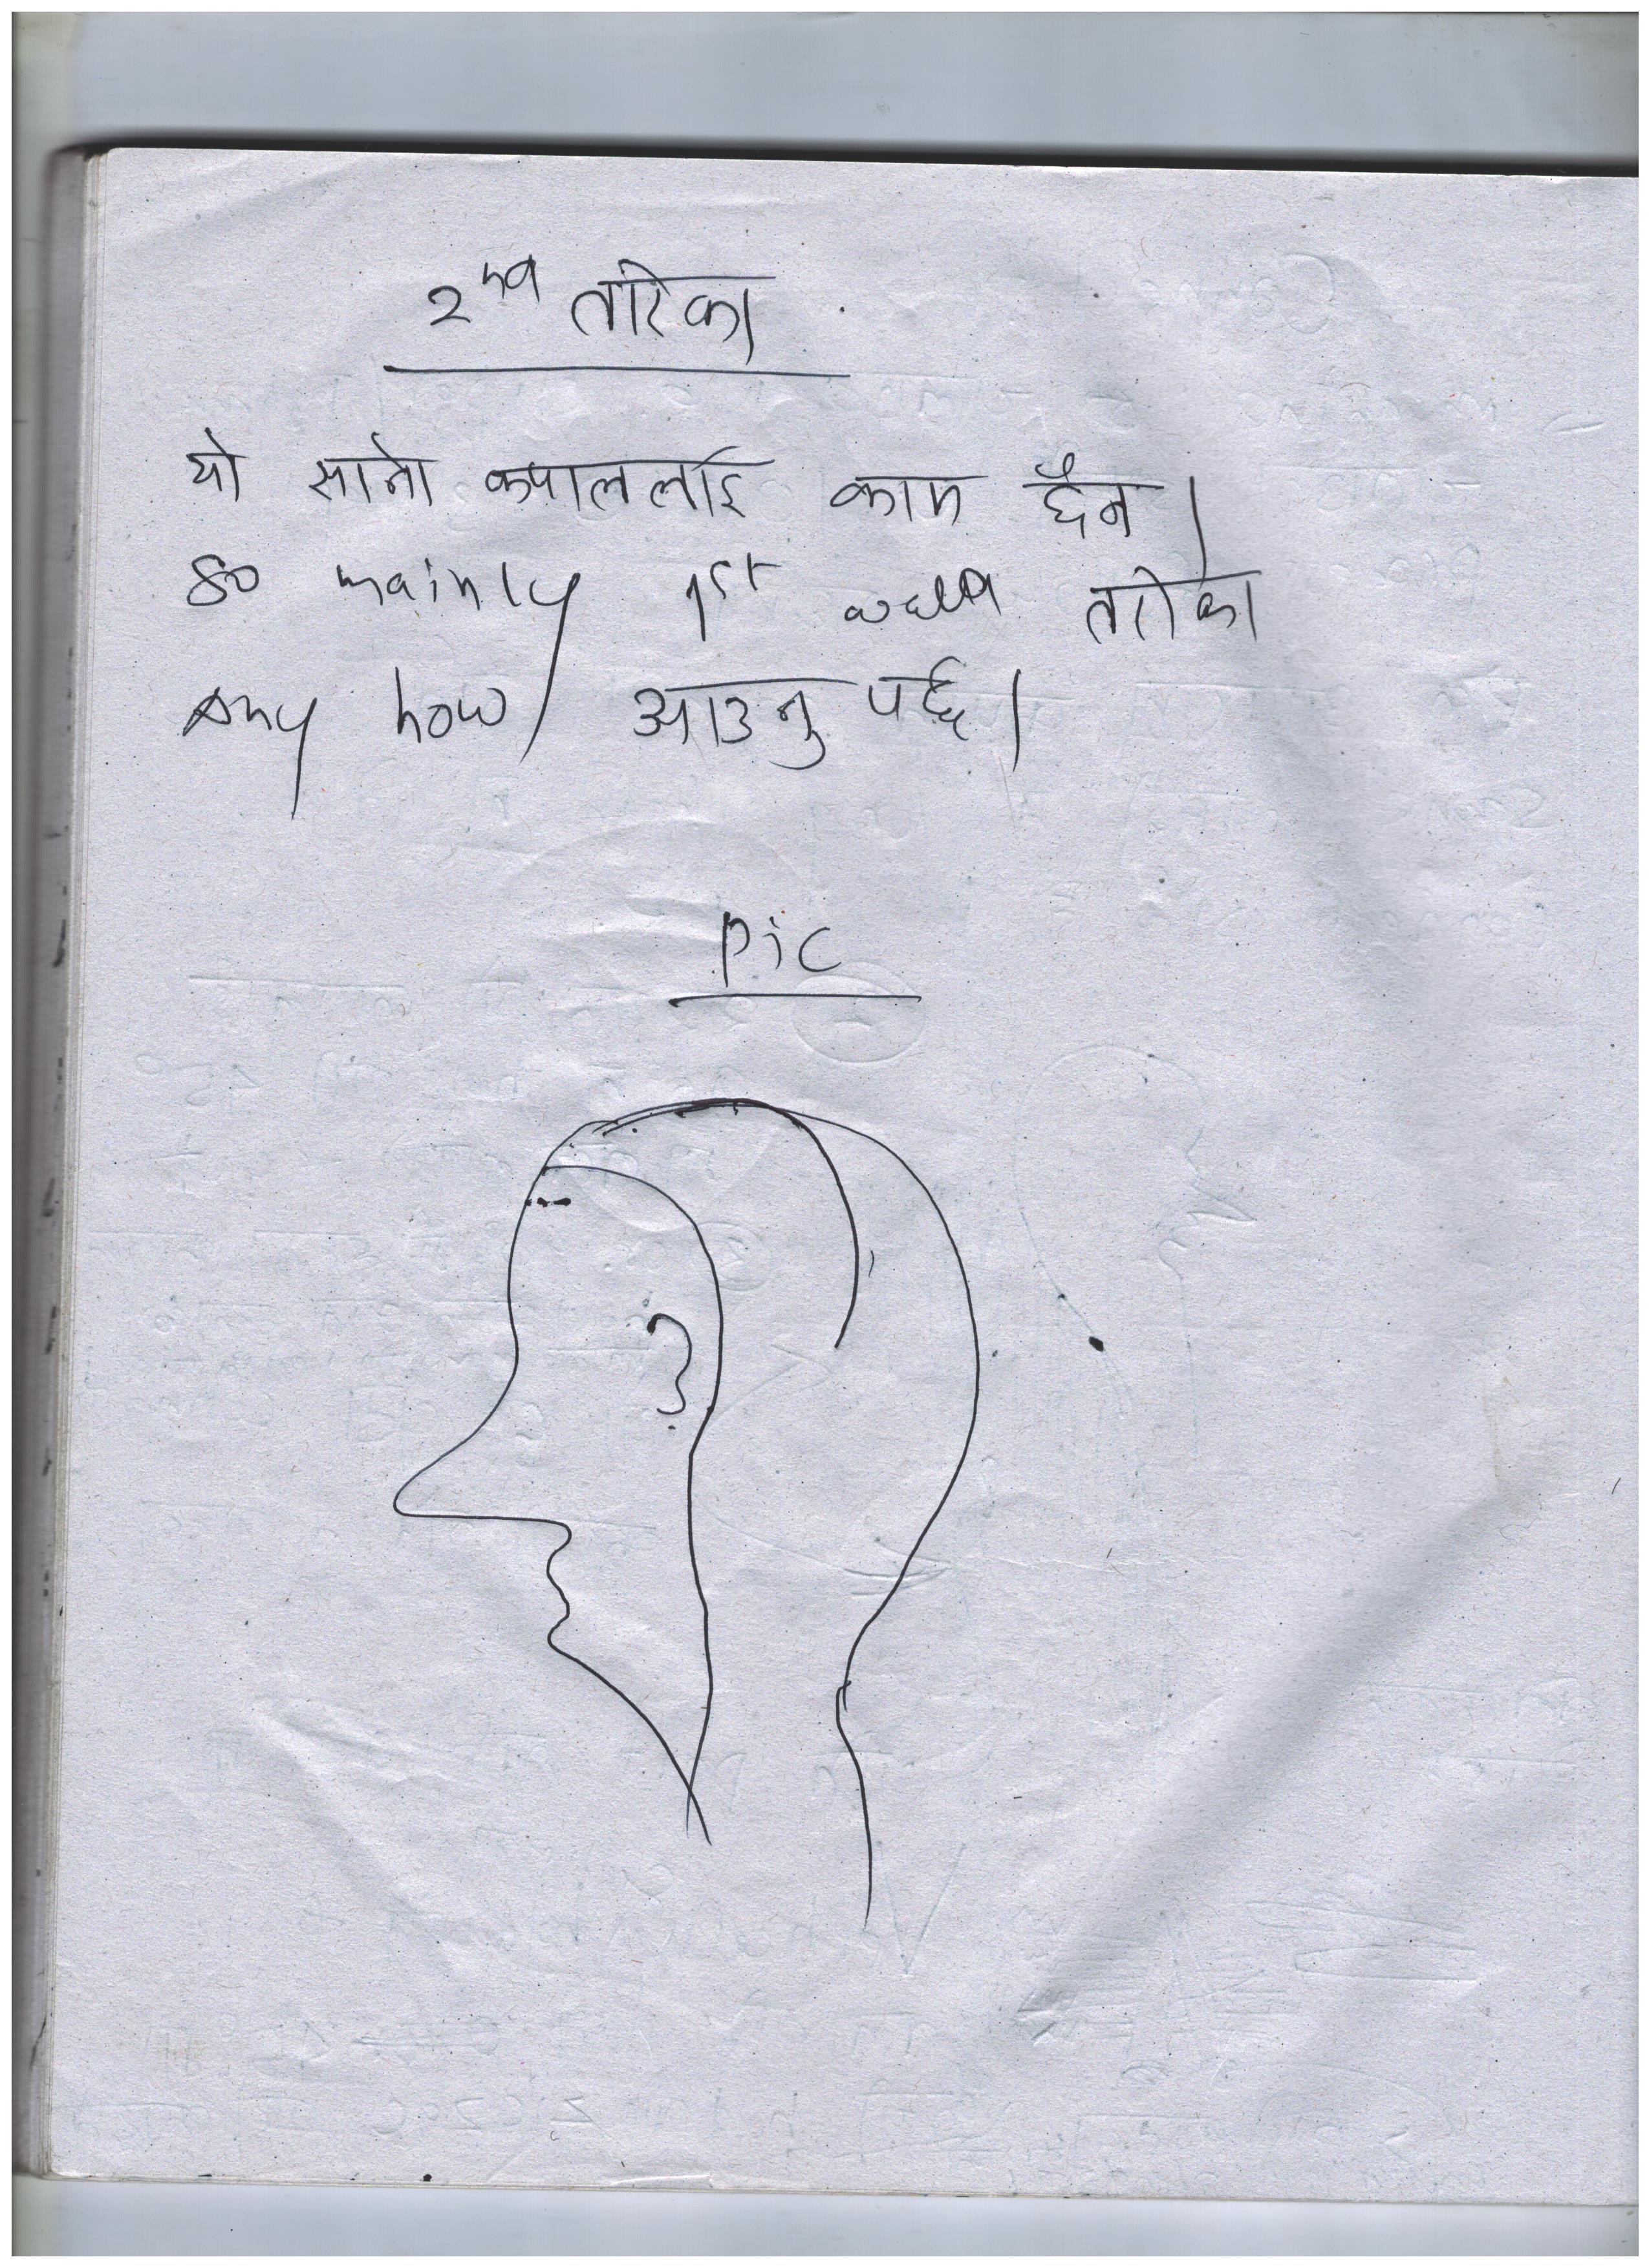 2nd तरिका
यो सानो कपाललाई काम छैन।
so mainly 1st तरीका
Any how आउनु पर्छ।
Pic